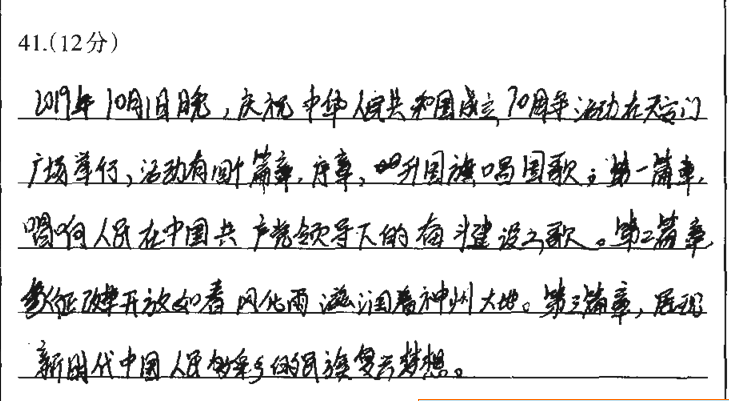 41.(12分)
2019年10月1日晚,庆祝中华人民共和国成立70周年活动在天安门
广场举行,活动有四个篇章,序章,升国旗唱国歌;第一篇章,
唱响人民在中国共产党领导下的奋斗建设之歌。第二篇章,
象征改革开放如春风化雨滋润着神州大地。第三篇章,展现
新时代中国人民多彩的民族复兴梦想。